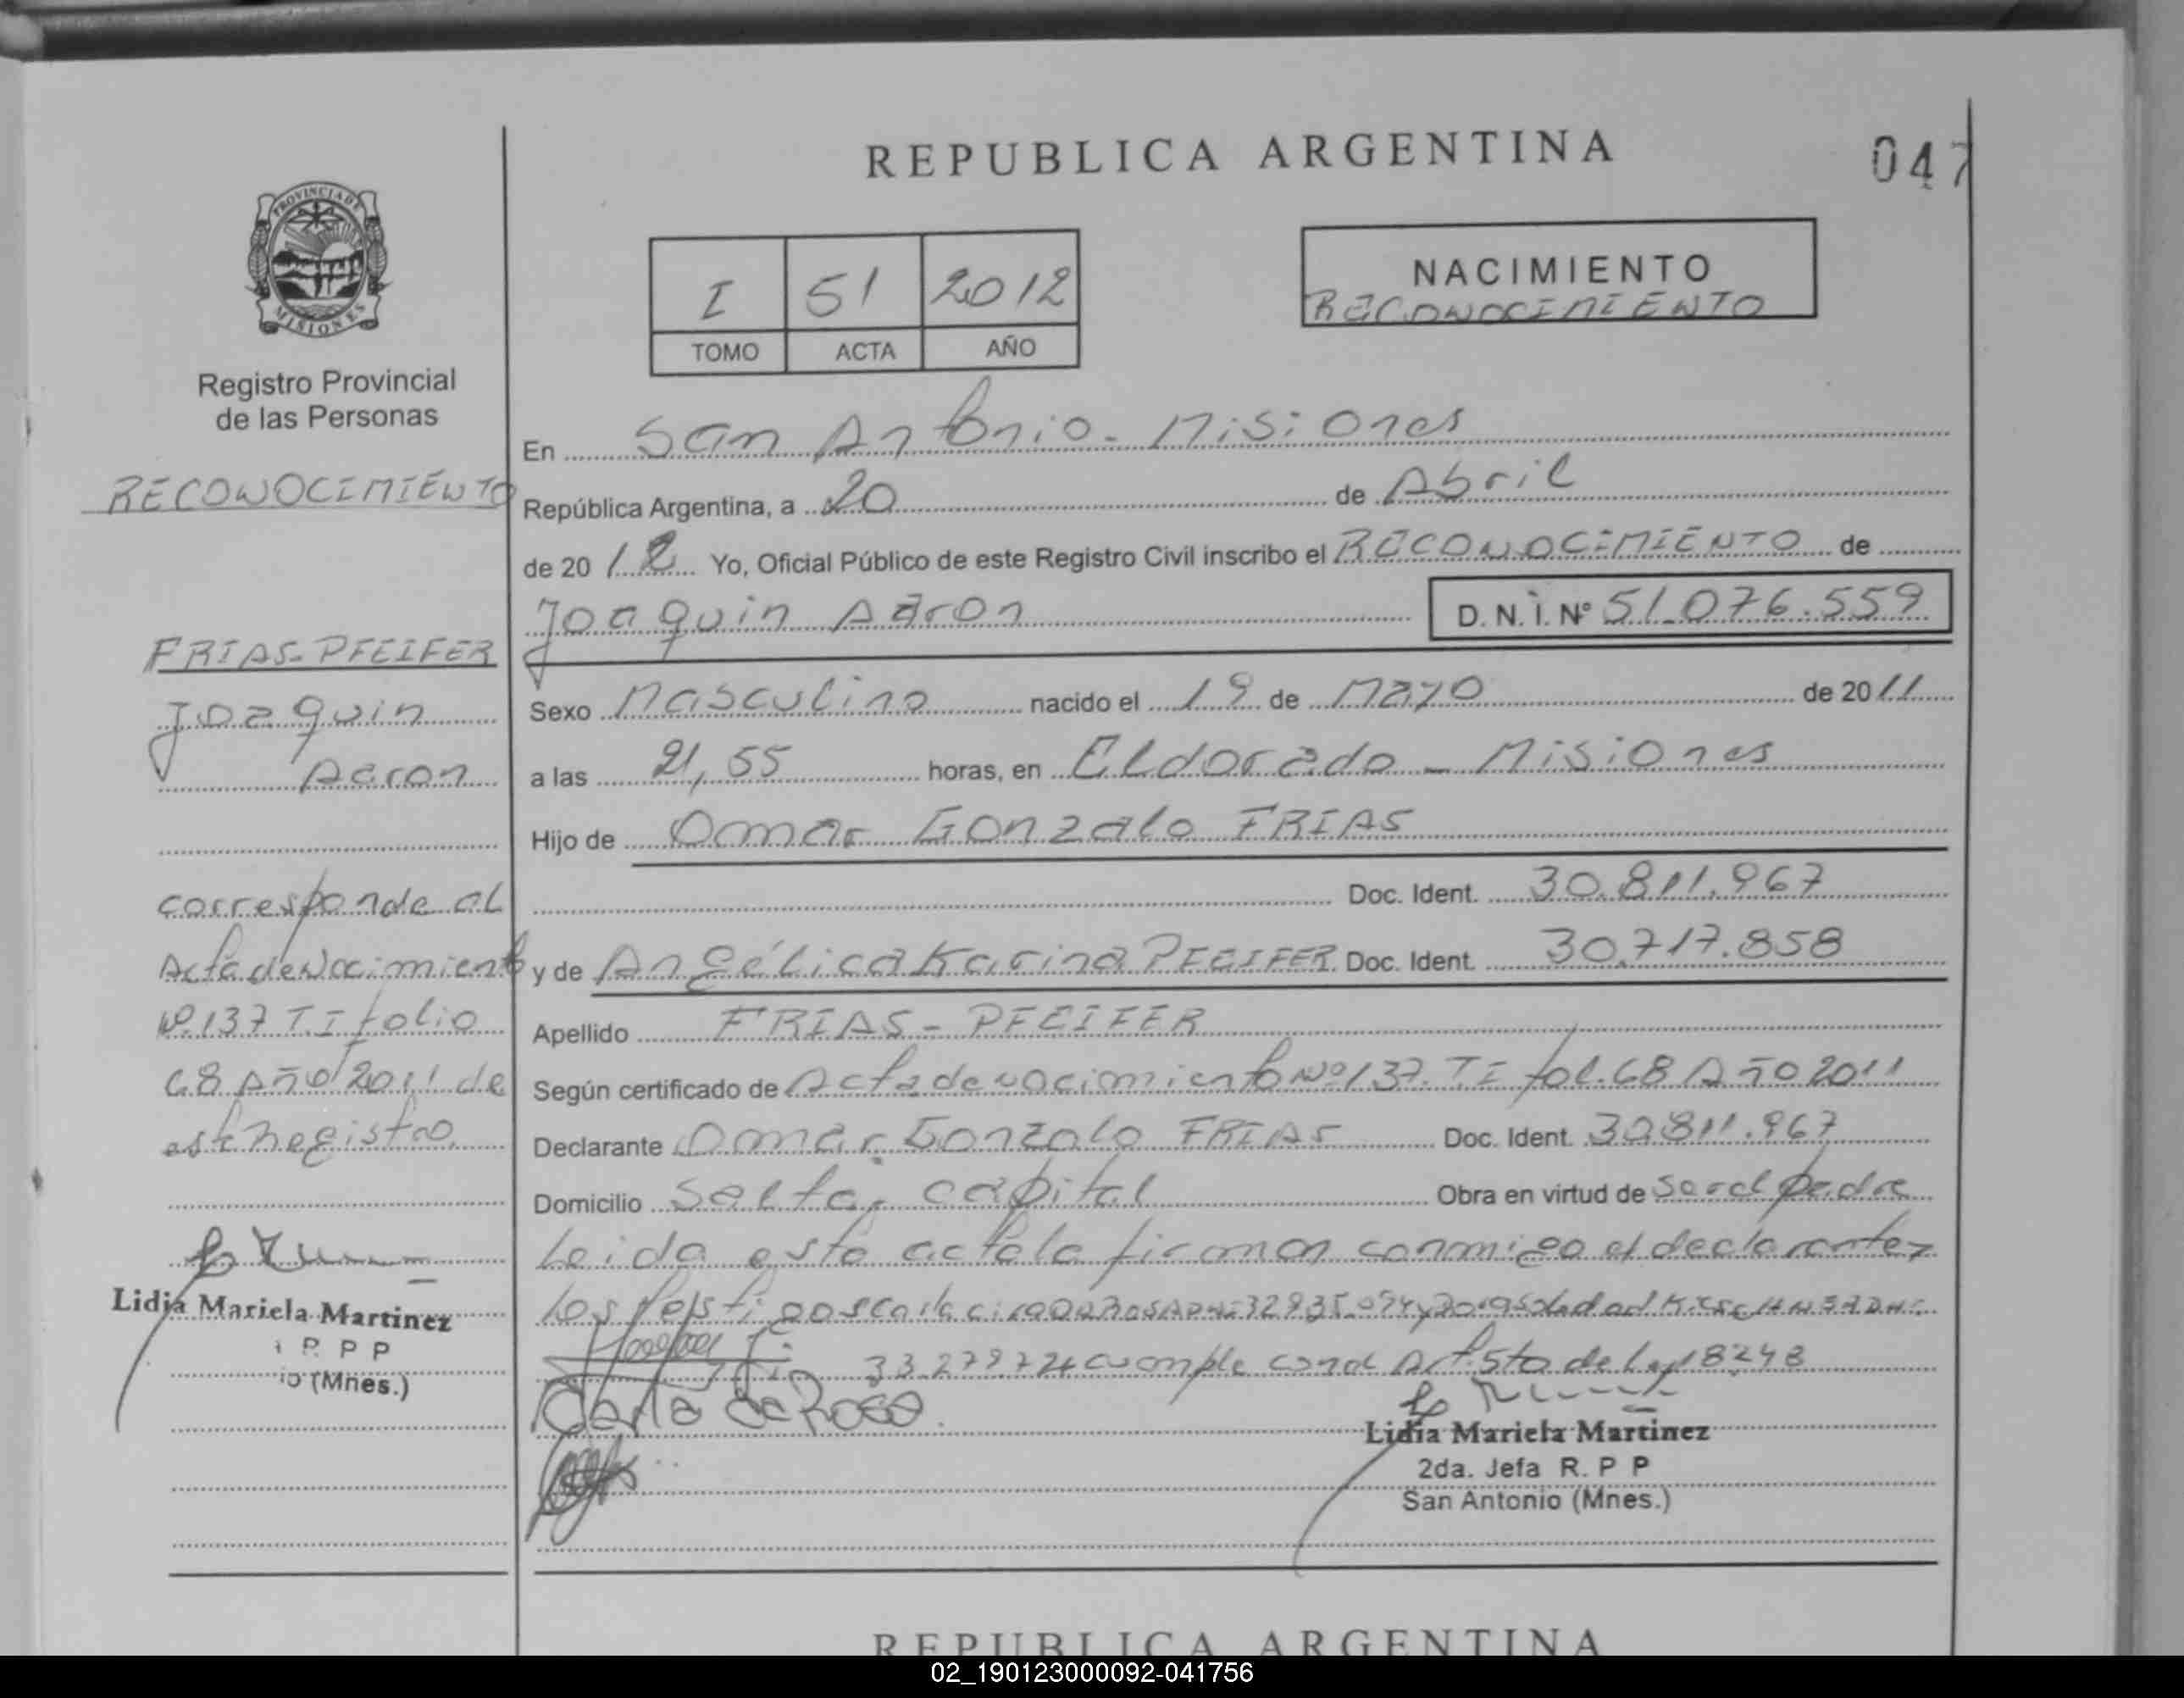 REPUBLICA ARGENTINA
047
PROVINCIA DE
MISIONES
Registro Provincial
de las Personas
RECONOCIMIENTO
FRIAS-PFEIFER
Joaquin
Aaron
corresponde al
Acta de Nacimiento
Nº 137 T.I folio
68 Año 2011 de
este Registro
Lidia Mariela Martinez
P P P
(Mnes.)
I 51 2012
TOMO ACTA AÑO
NACIMIENTO
RECONOCIMIENTO
En San Antonio - Misiones
República Argentina, a 20 de Abril
de 20 12 Yo, Oficial Público de este Registro Civil inscribo el RECONOCIMIENTO de
Joaquin Aaron D. N. I. Nº 51.076.559
Sexo Masculino nacido el 19 de Mayo de 20 11
a las 21,55 horas, en Eldorado - Misiones
Hijo de Omar Gonzalo FRIAS
Doc. Ident. 30.811.967
y de Angélica Karina PFEIFER Doc. Ident. 30.717.858
Apellido FRIAS - PFEIFER
Según certificado de Acta de nacimiento Nº 137. TI fol. 68 Año 2011
Declarante Omar Gonzalo FRIAS Doc. Ident. 30.811.967
Domicilio Salta, capital Obra en virtud de ser el padre
Leida esta acta la firman conmigo el declarante y
los testigos
33.279.724 cumple con el Art. 5to de Ley 18248
Carla da Rosa
Lidia Mariela Martinez
2da. Jefa R. P P
San Antonio (Mnes.)
REPUBLICA ARGENTINA
02_190123000092-041756